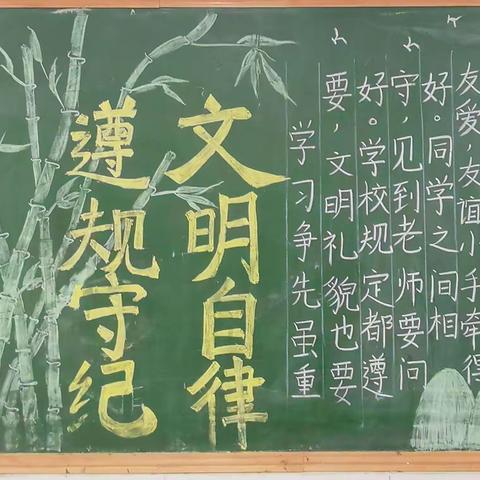 遵规守纪
文明自律
学习争先虽重
要,文明礼貌也要
好。学校规定都遵
守,见到老师要问
好。同学之间相
友爱,友谊小手牵得